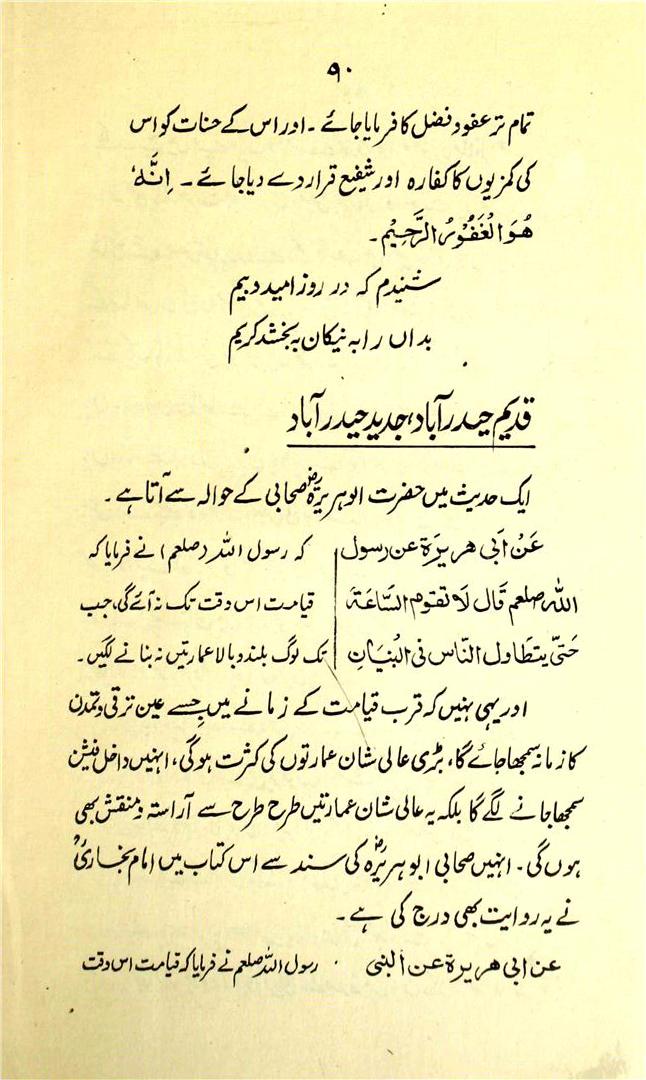 ۹۰
تمام تر عفو و فضل کا فرمایا جائے۔ اور اس کے حسنات کو اس
کی کمزیوں کا کفارہ اور شفیع قرار دے دیا جائے۔ اِنَّہٗ
ھُوَ الْغَفُوْرُ الرَّحِیْم۔
شنیدم کہ در روز امید و بیم
بداں را بہ نیکاں بہ بخشد کریم
قدیم حیدرآباد، جدید حیدرآباد
ایک حدیث میں حضرت ابوہریرہؓ صحابی کے حوالہ سے آتا ہے۔
عَنْ ابی ھریرۃ عن رسول
اللہ صلعم قَالَ لَا تقوم السَّاعَۃَ
حَتّیٰ یتطاول النّاس فی البُنیَانِ
کہ رسول اللہ (صلعم) نے فرمایا کہ
قیامت اس وقت تک نہ آئے گی، جب
تک لوگ بلند و بالا عمارتیں نہ بنانے لگیں۔
اور یہی نہیں کہ قرب قیامت کے زمانے میں جسے عین ترقی و تمدن
کا زمانہ سمجھا جائے گا، بڑی عالی شان عمارتوں کی کثرت ہوگی، انہیں داخل فیشن
سمجھا جانے لگے گا بلکہ یہ عالی شان عمارتیں طرح طرح سے آراستہ و منقش بھی
ہوں گی۔ انہیں صحابی ابوہریرہؓ کی سند سے اس کتاب میں امام بخاریؒ
نے یہ روایت بھی درج کی ہے۔
عن ابی ھریرۃ عن النبی
رسول اللہ صلعم نے فرمایا کہ قیامت اس وقت